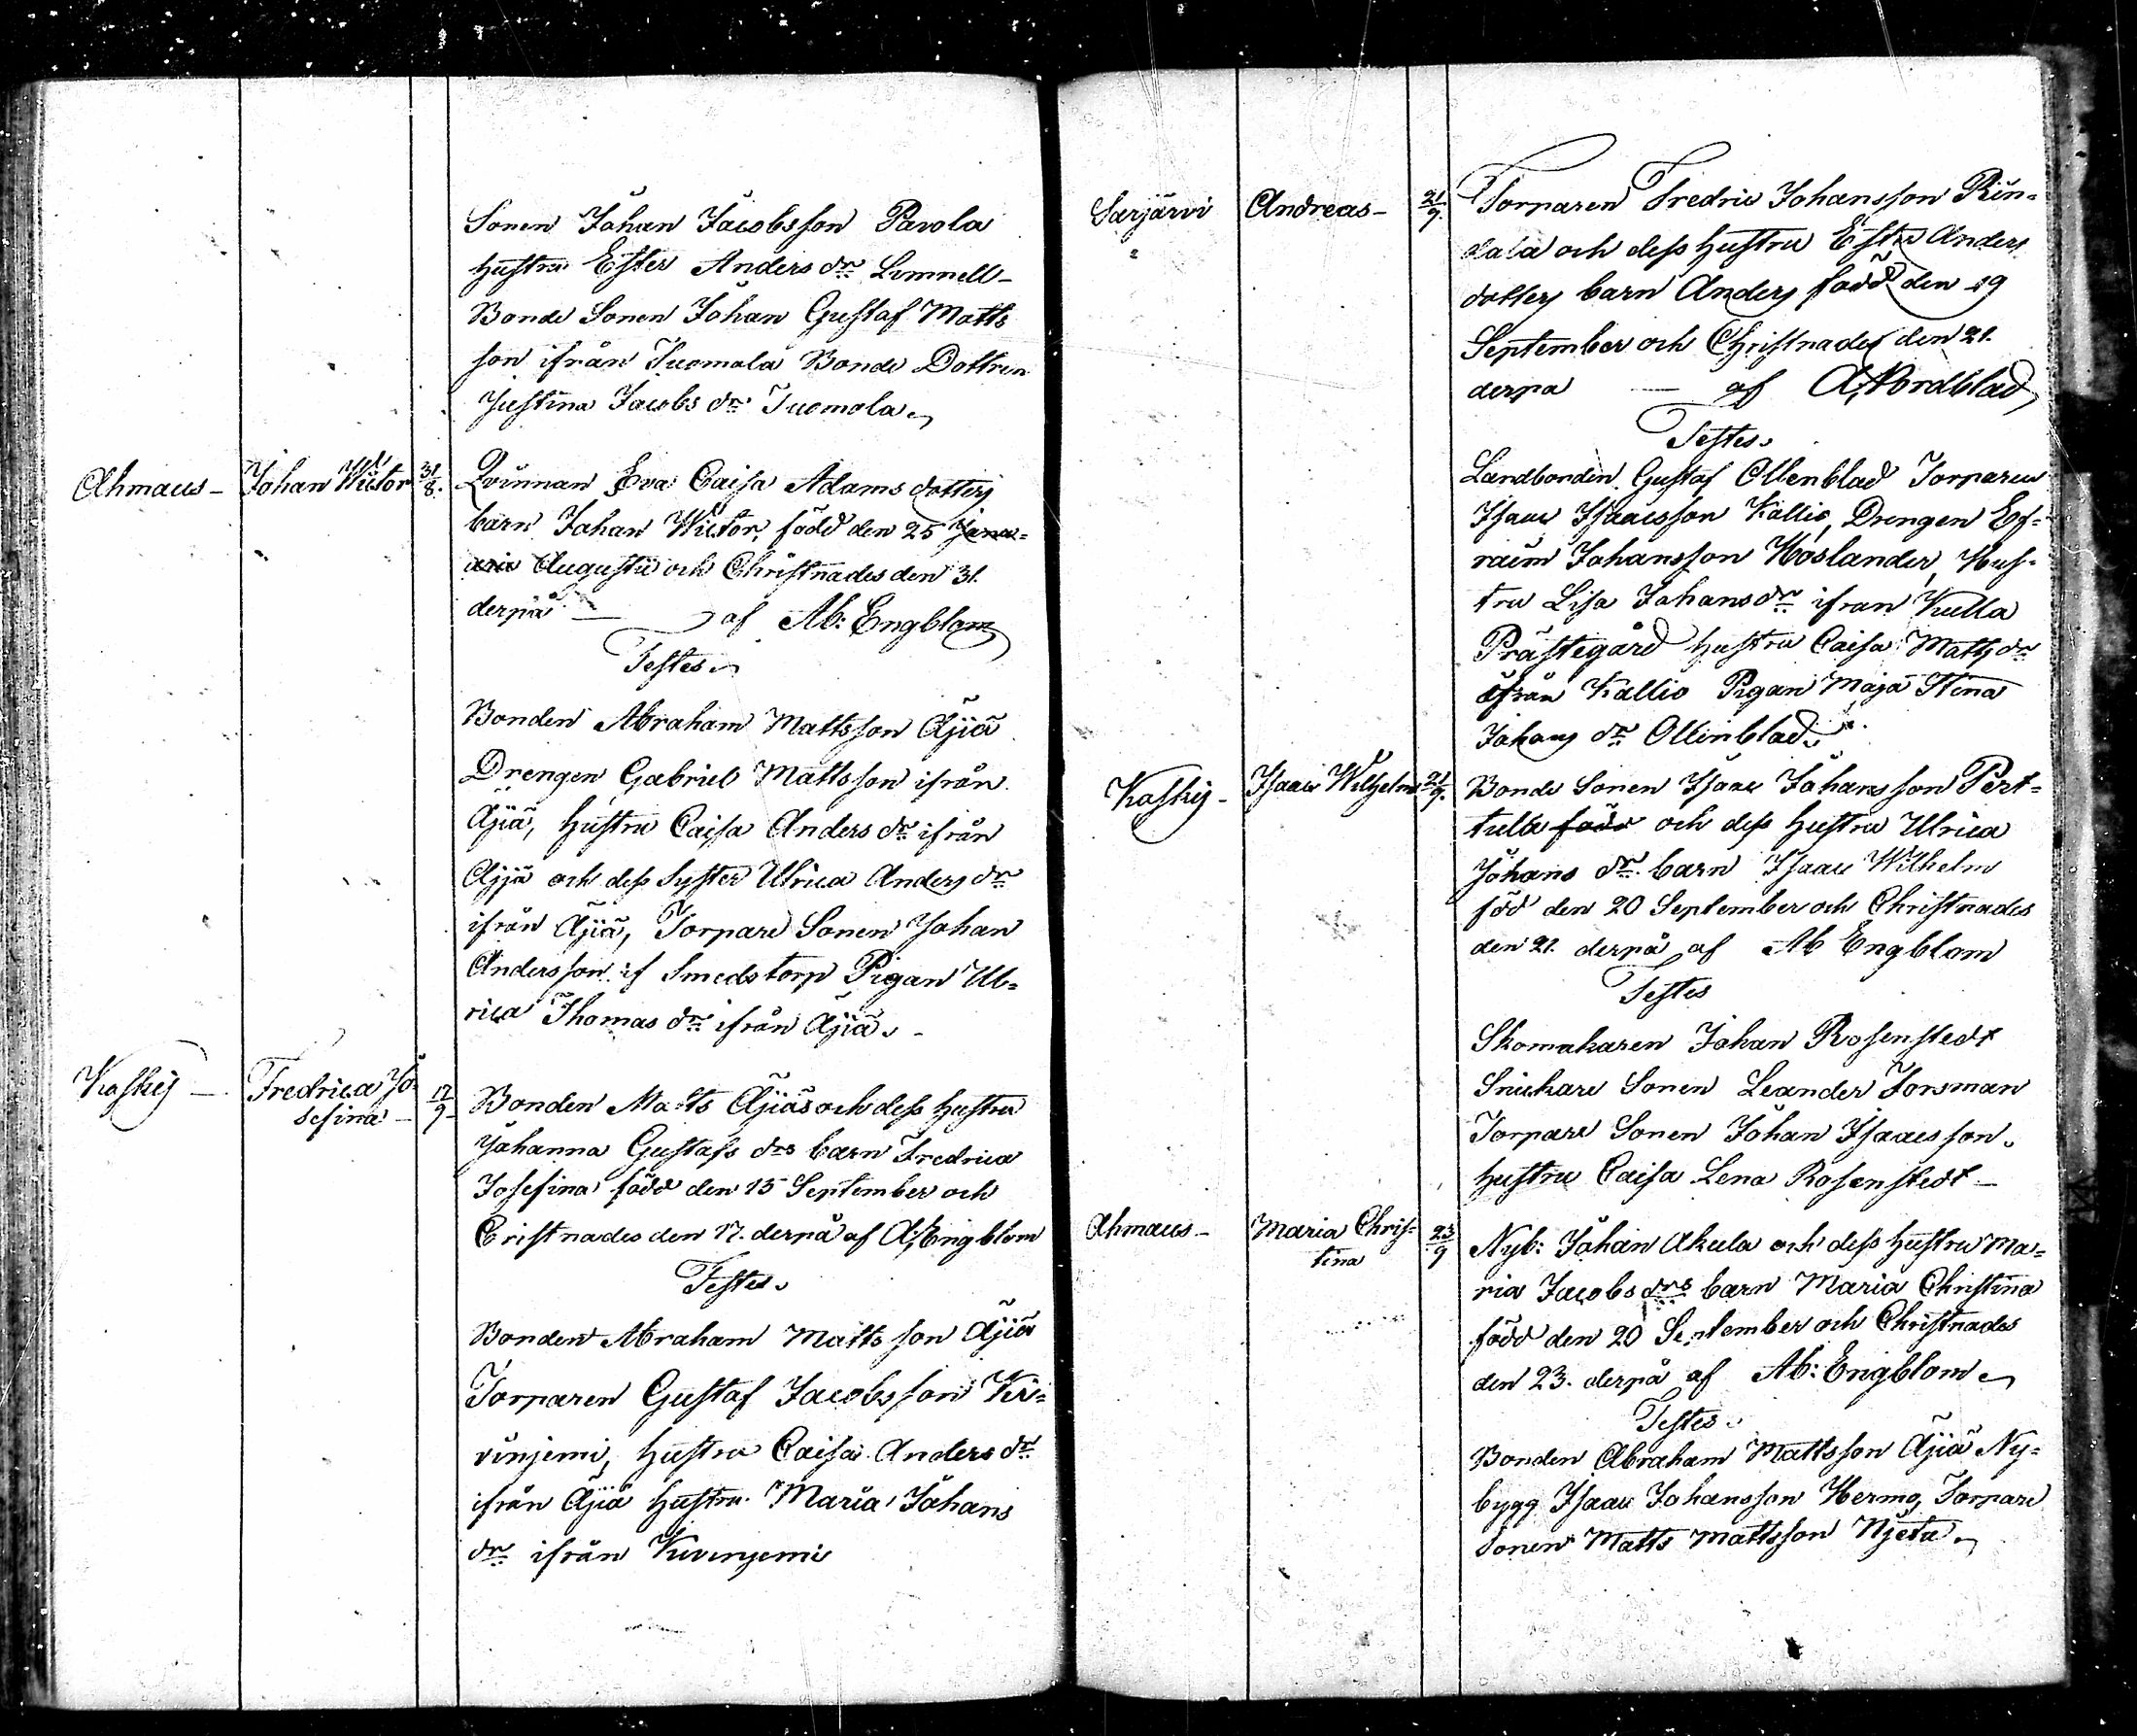 Sonen Johan Jacobsson Pavola
hustru Ester Anders dr Limnell-
Bonde Sonen Johan Gustaf Matts
son ifrån Tuomala Bonde Dottren
Justina Jacobs dr Tuomola
Ahmaus- Johan Wictor 31/8. Qvinnan Eva Caisa Adams dotters
barn Johan Wictor, född den 25 Janu=
arii Augustii och Christnades den 31.
derpå — af Ab: Engblom
Testes
Bonden Abraham Mattsson Äjiä
Drengen Gabriel Mattsson ifrån
Äjiä, hustru Caisa Anders dr ifrån
Äjjä och dess Syster Ulrica Anders dr
ifrån Äjiä, Torpare Sonen Johan
Andersson if Smedstorp Pigan Ul=
rica Thomas dr ifrån Äjiä.
Kaskis — Fredrica Jo= 17/9 Bonden Matts Äjiäs och dess hustru
sefina —
Johanna Gustafs drs barn Fredrica
Josefina född den 15 September och
Cristnades den 17. derpå af A: Engblom
Testes.
Bonden Abraham Matts son Äjiä
Torparen Gustaf Jacobsson Ki=
vinjemi, hustru Caisa Anders dr
ifrån Äjiä hustru Maria Johans
dr ifrån Kivinjemi
Sarjärvi Andreas- 21/9. Torparen Fredric Johansson Rin=
dala och dess hustru Esta Anders
dotters barn Anders född den 19
September och Christnades den 21.
derpa — af A. Nordblad
Testes.
Landbonden Gustaf Ollenblad Torparen
Isaac Isaacsson Kallio, Drengen Ef=
raim Johansson Höslander, Hus=
tru Lisa Johans dr ifran Kulla
Prästegård hustru Caisa Matts dr
ifrån Kallio Pigan Maja Stina
Johans dr Ollinblad.
Kaskis- Isaac Wilhelm 21/9. Bonde Sonen Isaac Johansson Pert=
tula född och dess hustru Ulrica
Johans dr barn Isaac Wilhelm
föd den 20 September och Christnades
den 21. derpå af Ab Engblom
Testes
Skomakaren Johan Rosenstedt
Snickare Sonen Leander Forsman
Torpare Sonen Johan Isaacsson.
hustru Caisa Lena Rosenstedt —
Ahmaus- Maria Chris= 23/9 Nyb: Johan Akula och dess hustru Ma=
tina
ria Jacobs drs barn Maria Christina
född den 20 September och Christnades
den 23. derpå af Ab: Engblom
Testes.
Bonden Abraham Mattsson Äjiä Ny=
bygg Isaac Johansson Hermo, Torpare
Sonen Matts Mattsson Njeta